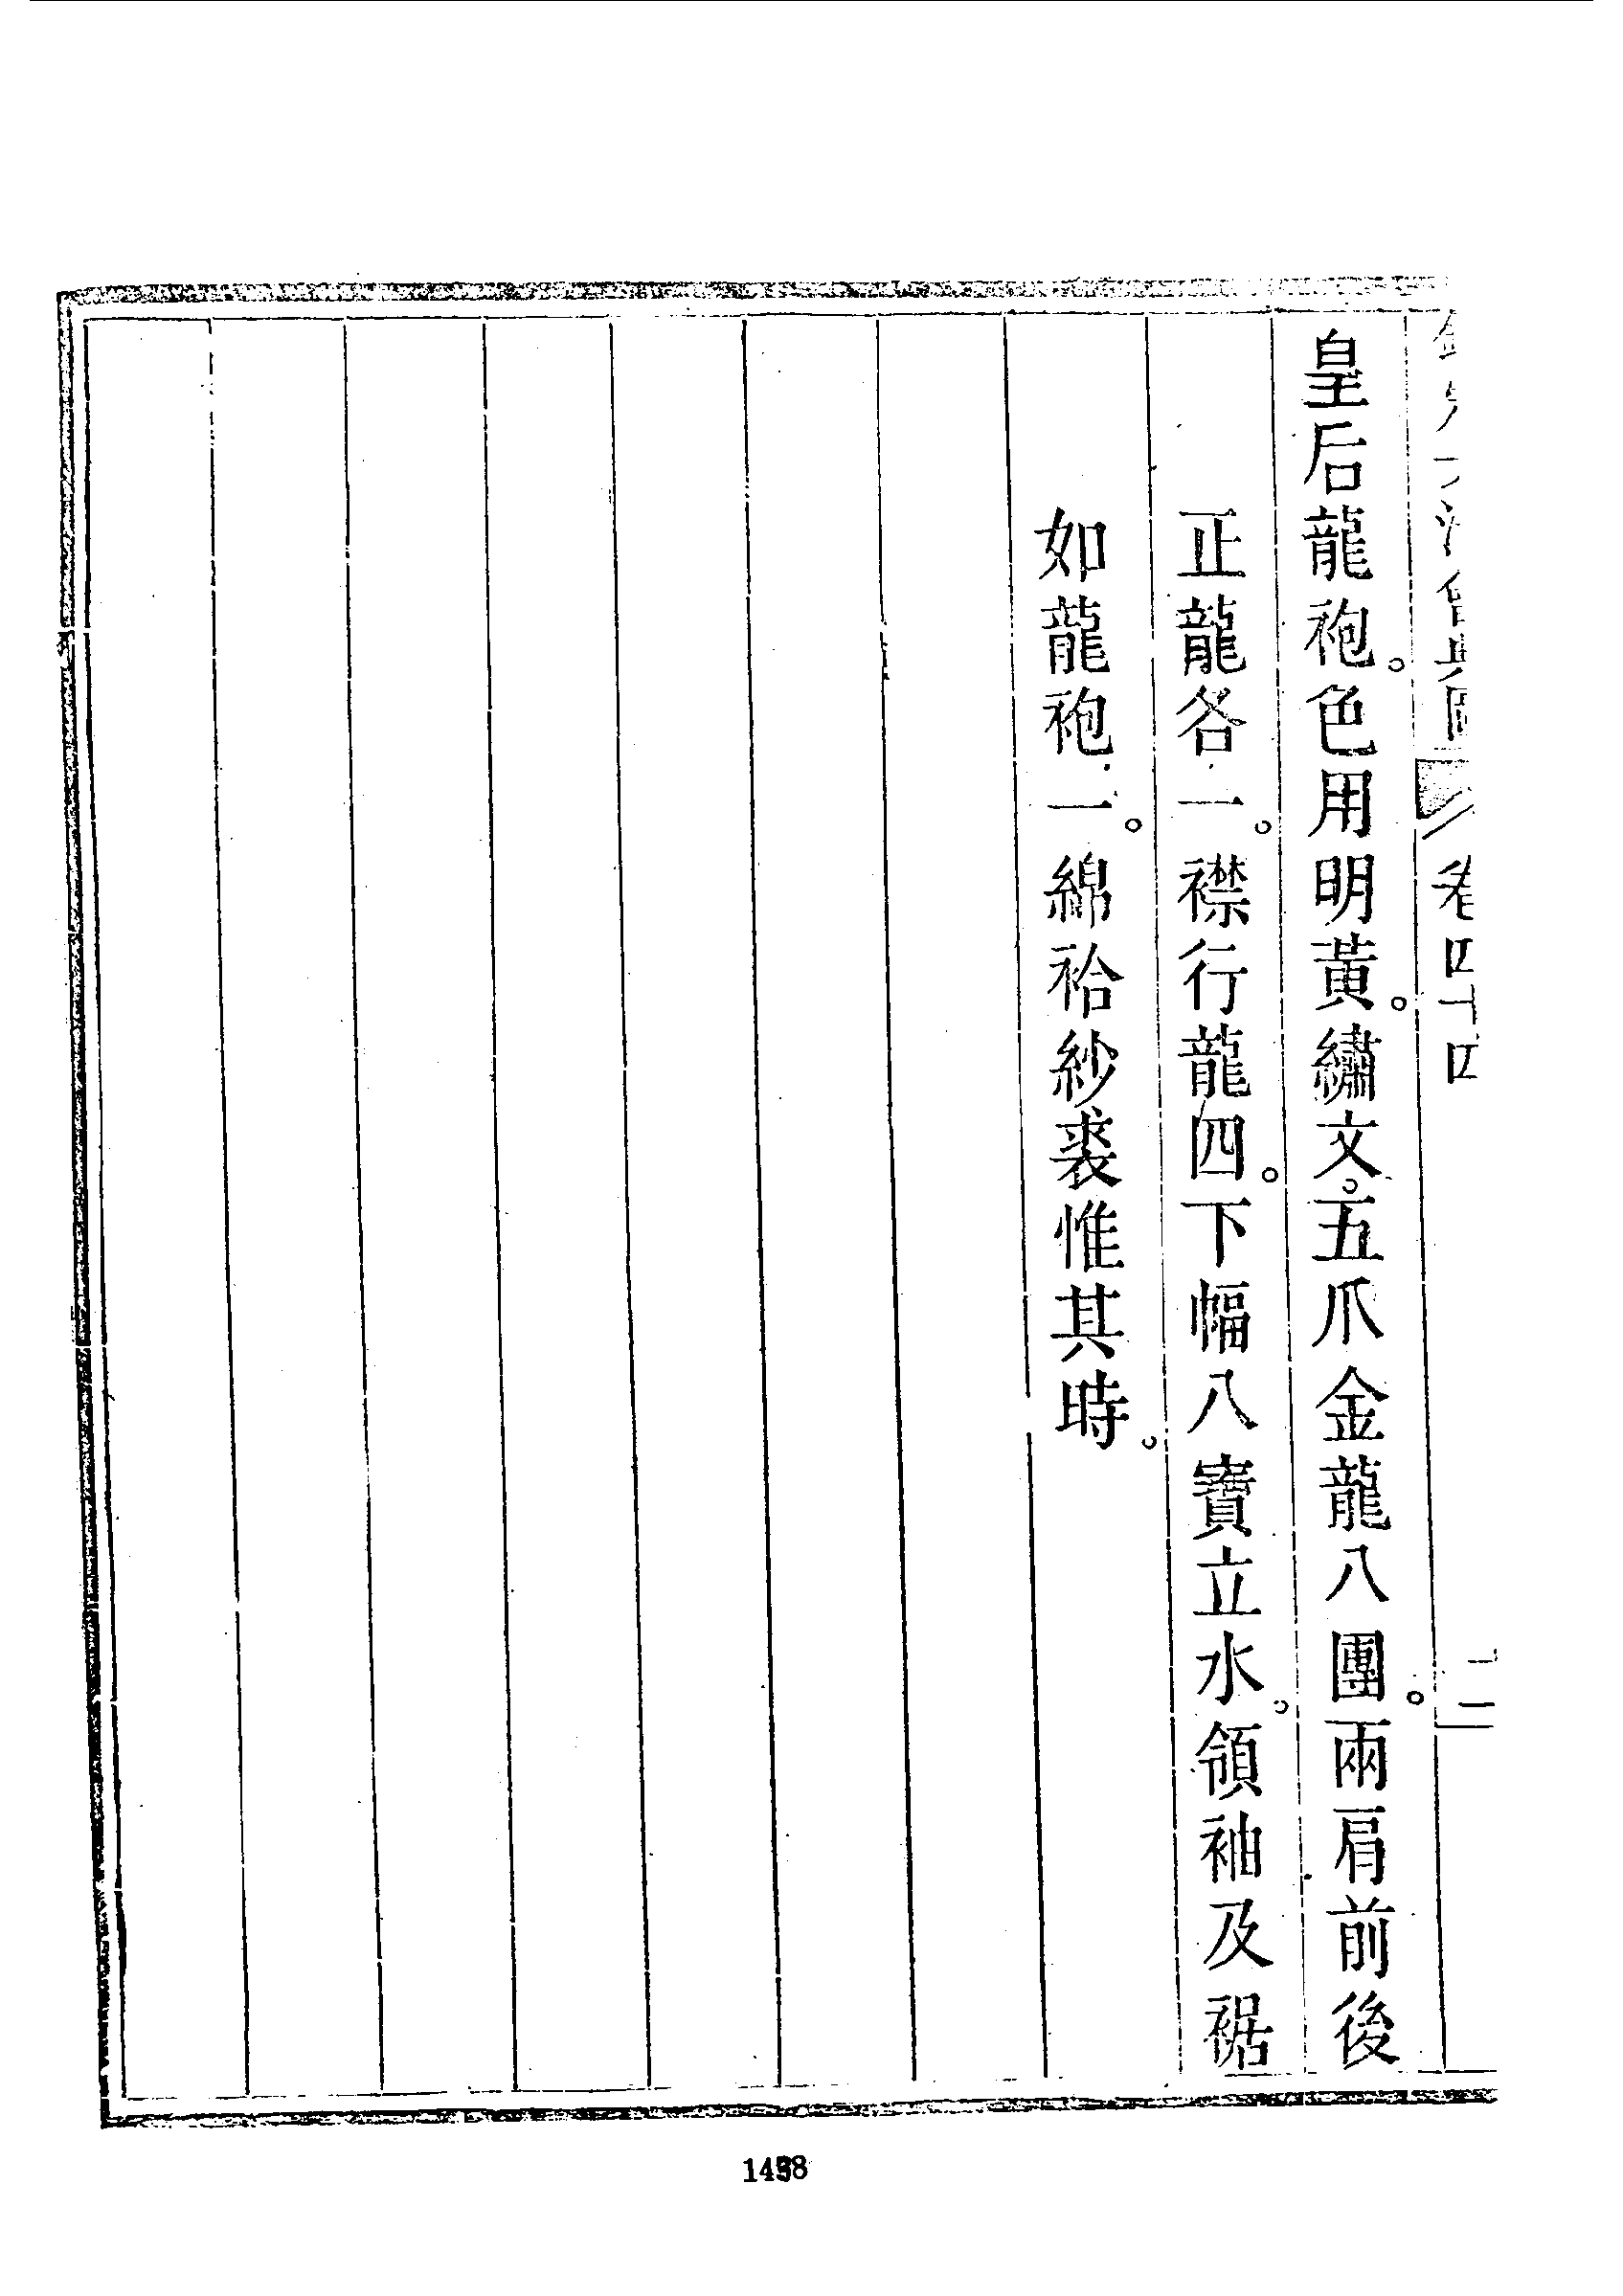 卷四十四
二
皇后龍袍。色用明黃。繡文。五爪金龍八團。兩肩前後
正龍各一。襟行龍四。下幅八寶立水。領袖及裾
如龍袍一。綿袷紗裘惟其時。